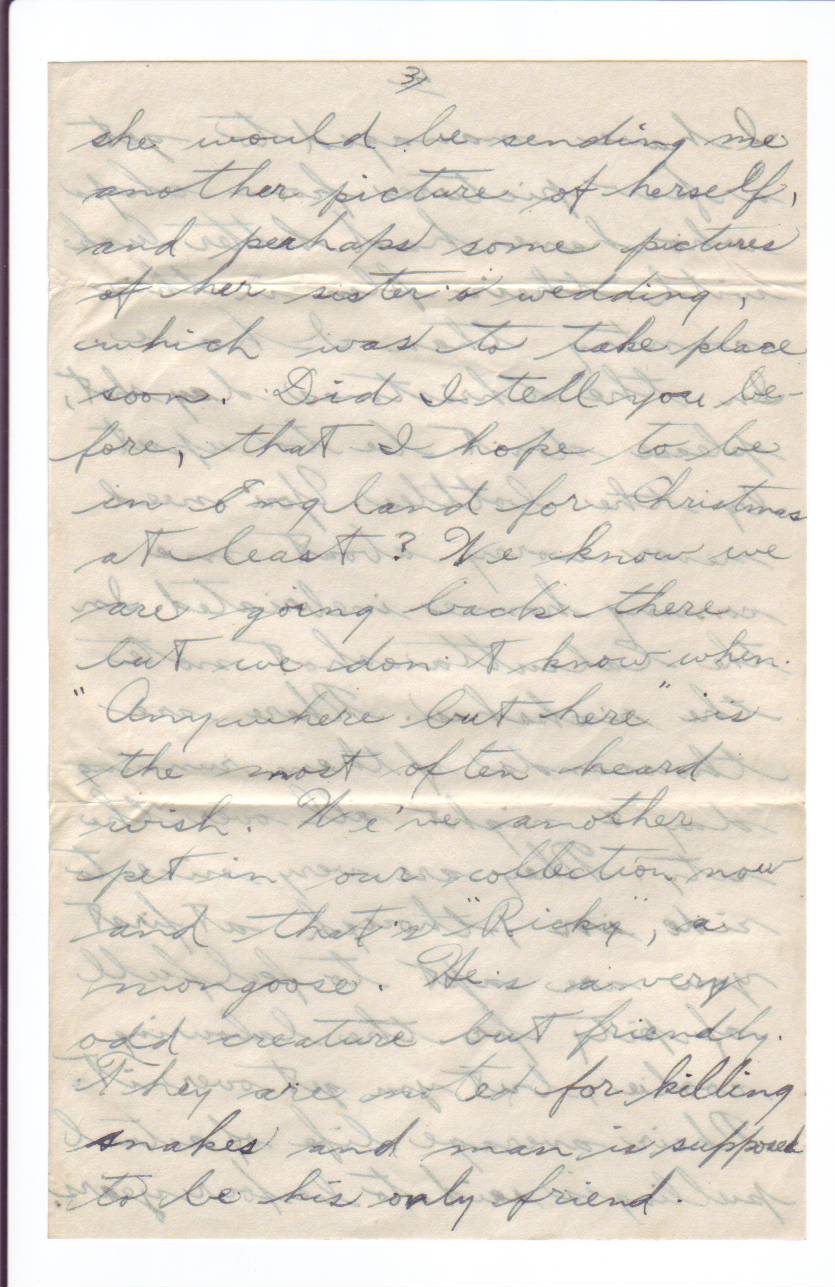 3/
she would be sending me
another picture of herself,
and perhaps some pictures
of her sister's wedding,
which was to take place
soon. Did I tell you be-
fore, that I hope to be
in England for Christmas
at least? We know we
are going back there
but we don't know when.
"Anywhere but here" is
the most often heard
wish. We've another
pet in our collection now
and that's "Ricky", a
mongoose. He is a very
odd creature but friendly.
They are for killing
snakes and man is supposed
to be his only friend.